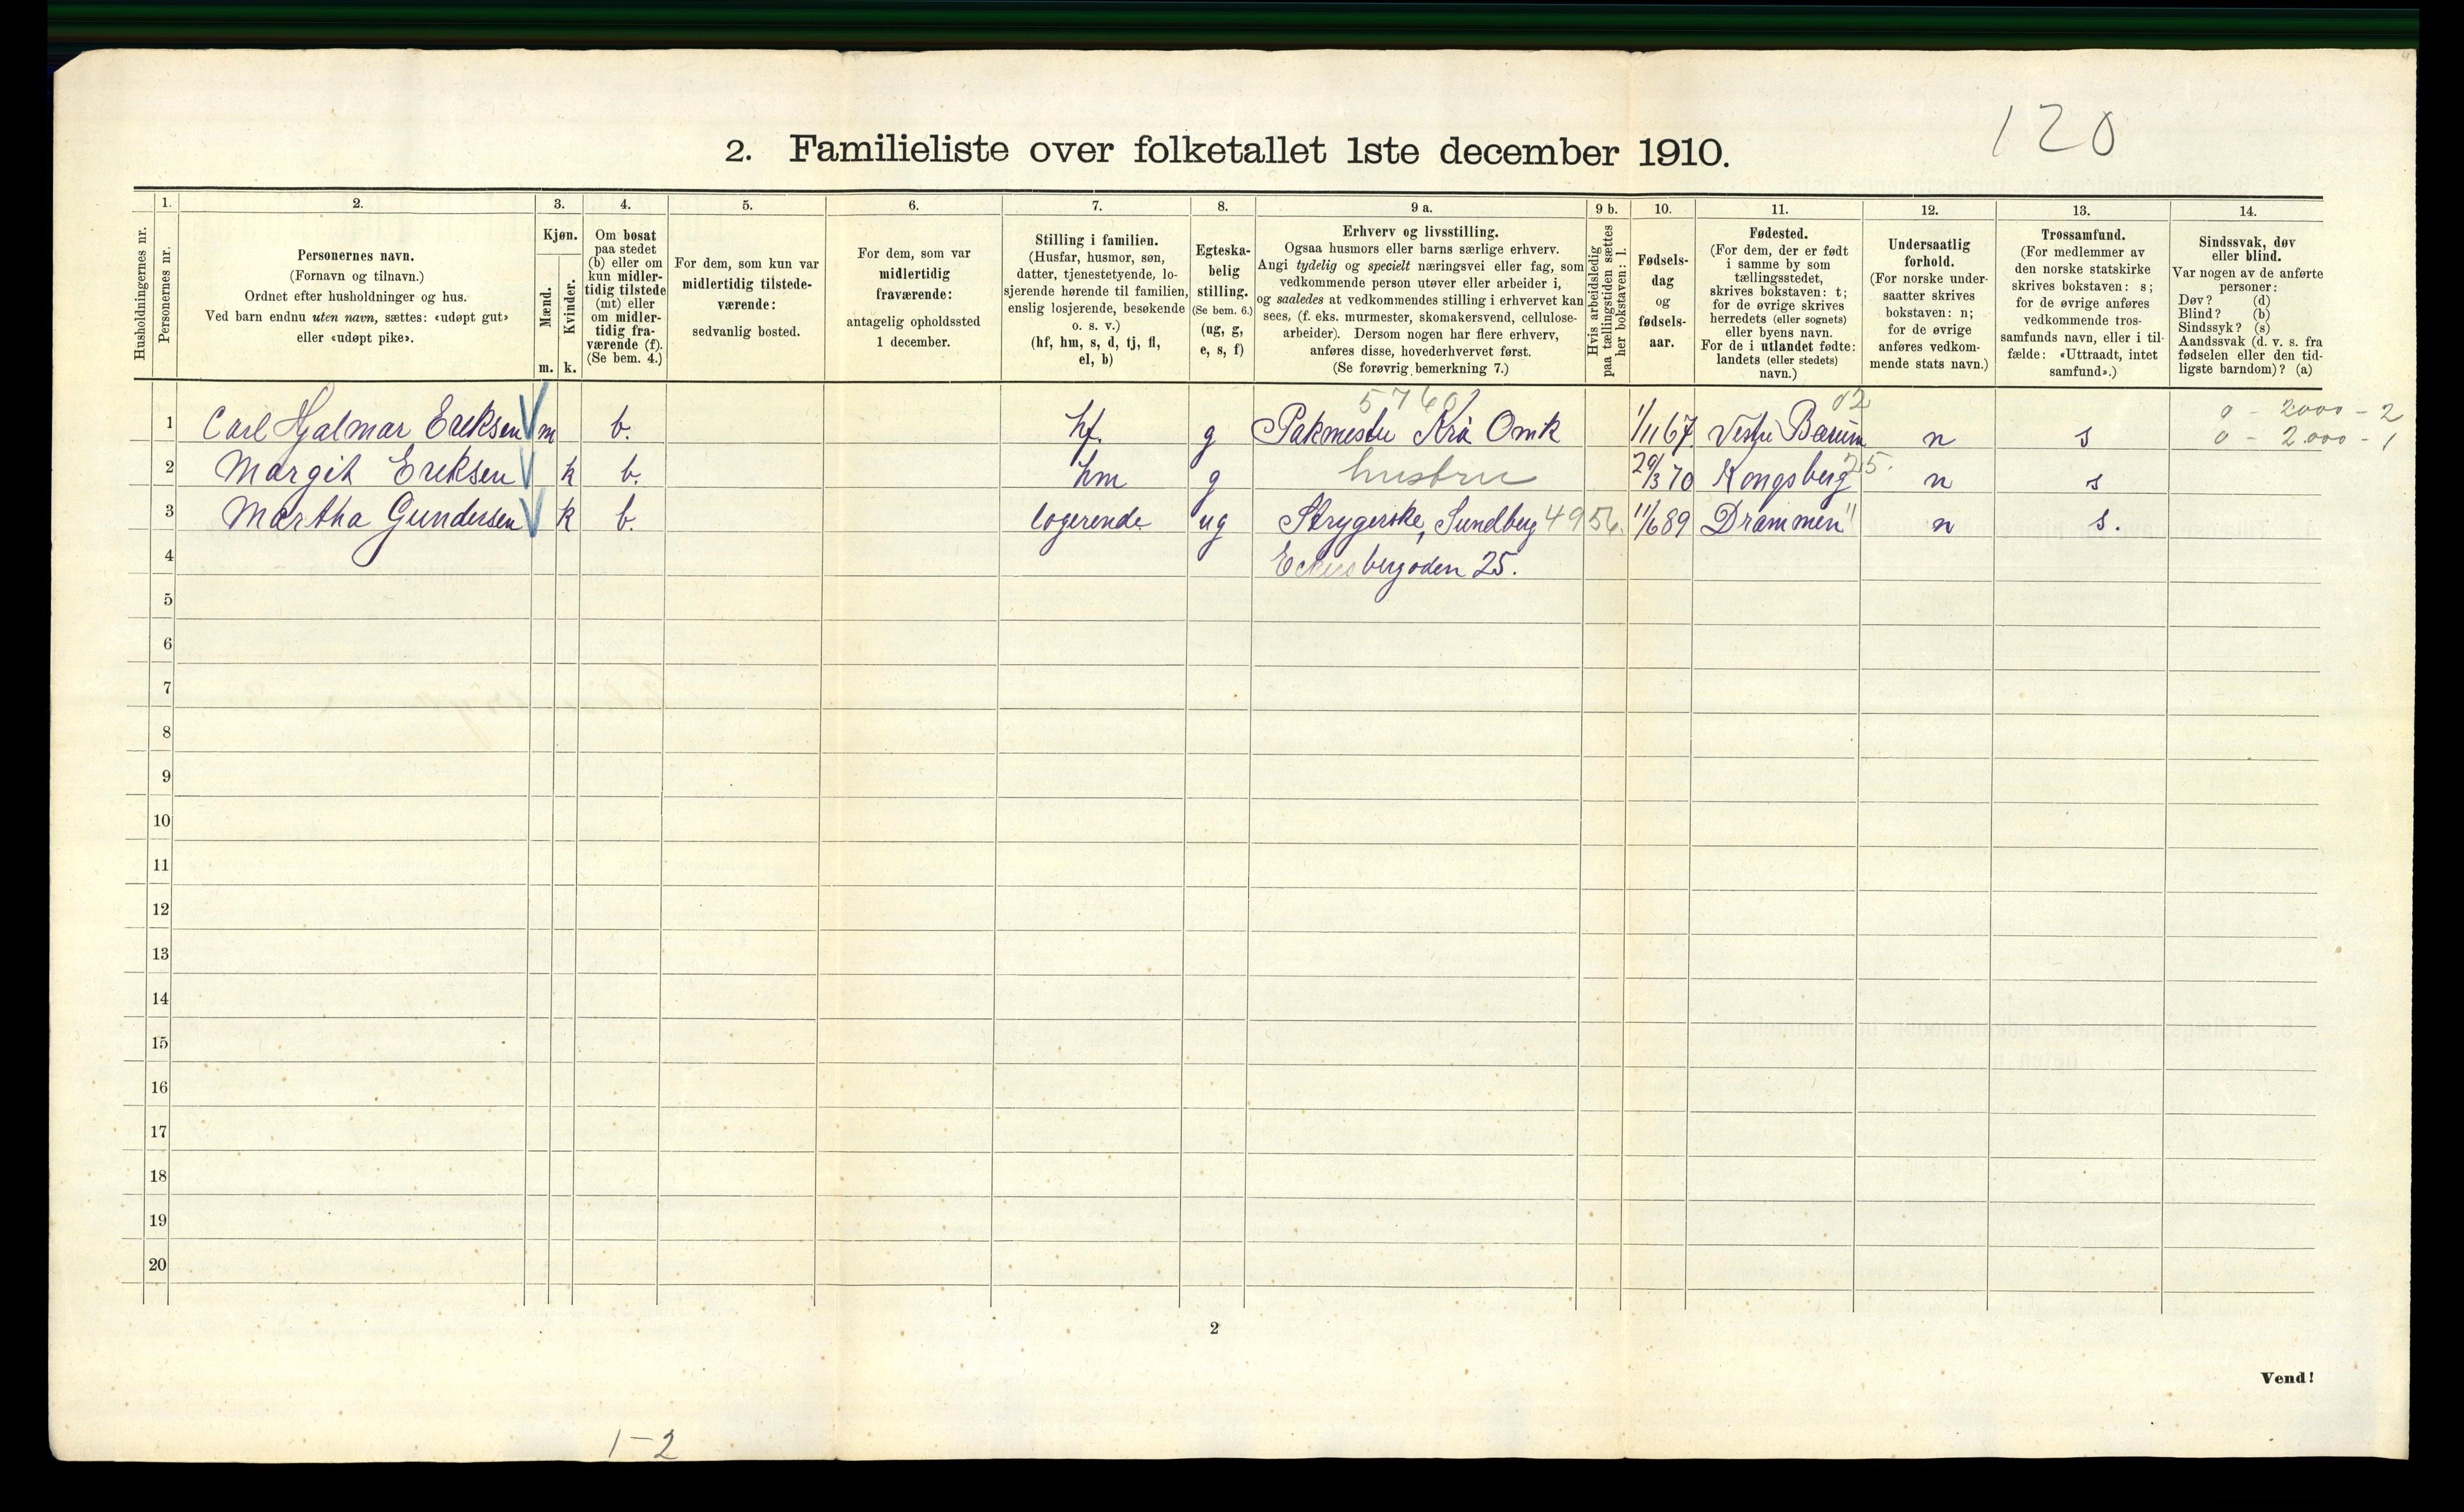 120
2. Familieliste over folketallet 1ste december 1910.
Husholdningernes nr.
1.
Personernes nr.
2.
Personernes navn.
(Fornavn og tilnavn.)
Ordnet efter husholdninger og hus.
Ved barn endnu uten navn, sættes: «udøpt gut»
eller «udøpt pike».
3.
Kjøn.
Mænd.
Kvinder.
m. k.
4.
Om bosat
paa stedet
(b) eller om
kun midler-
tidig tilstede
(mt) eller
om midler-
tidig fra-
værende (f).
(Se bem. 4.)
5.
For dem, som kun var
midlertidig tilstede-
værende:
sedvanlig bosted.
6.
For dem, som var
midlertidig
fraværende:
antagelig opholdssted
1 december.
7.
Stilling i familien.
(Husfar, husmor, søn,
datter, tjenestetyende, lo-
sjerende hørende til familien,
enslig losjerende, besøkende
o. s. v.)
(hf, hm, s, d, tj, fl,
el, b)
8.
Egteska-
belig
stilling.
(Se bem. 6.)
(ug, g,
e, s, f)
9 a.
Erhverv og livsstilling.
Ogsaa husmors eller barns særlige erhverv.
Angi tydelig og specielt næringsvei eller fag, som
vedkommende person utøver eller arbeider i,
og saaledes at vedkommendes stilling i erhvervet kan
sees, (f. eks. murmester, skomakersvend, cellulose-
arbeider). Dersom nogen har flere erhverv,
anføres disse, hovederhvervet først.
(Se forøvrig bemerkning 7.)
9 b.
Hvis arbeidsledig
paa tællingstiden sættes
her bokstaven: l.
10.
Fødsels-
dag
og
fødsels-
aar.
11.
Fødested.
(For dem, der er født
i samme by som
tællingsstedet,
skrives bokstaven: t;
for de øvrige skrives
herredets (eller sognets)
eller byens navn.
For de i utlandet fødte:
landets (eller stedets)
navn.)
12.
Undersaatlig
forhold.
(For norske under-
saatter skrives
bokstaven: n;
for de øvrige
anføres vedkom-
mende stats navn.)
13.
Trossamfund.
(For medlemmer av
den norske statskirke
skrives bokstaven: s;
for de øvrige anføres
vedkommende tros-
samfunds navn, eller i til-
fælde: «Uttraadt, intet
samfund».)
14.
Sindssvak, døv
eller blind.
Var nogen av de anførte
personer:
Døv? (d)
Blind? (b)
Sindssyk? (s)
Aandssvak (d. v. s. fra
fødselen eller den tid-
ligste barndom)? (a)
5760 02 0 - 2000 - 2
1 Carl Hjalmar Eriksen m b. hf. g Pakmester Kra Omk 1/11 67 Vestre Bærum n s 0 - 2.000 - 1
2 Margit Eriksen k b. hm g hustru 29/3 70 Kongsberg 25. n s
3 Martha Gundersen k b. logerende ug Strygerske, Sundberg 49 56. 11/6 89 Drammen 11 n s.
4 bergoden 25.
5
6
7
8
9
10
11
12
13
14
15
16
17
18
19
20
2
Vend!
1-2